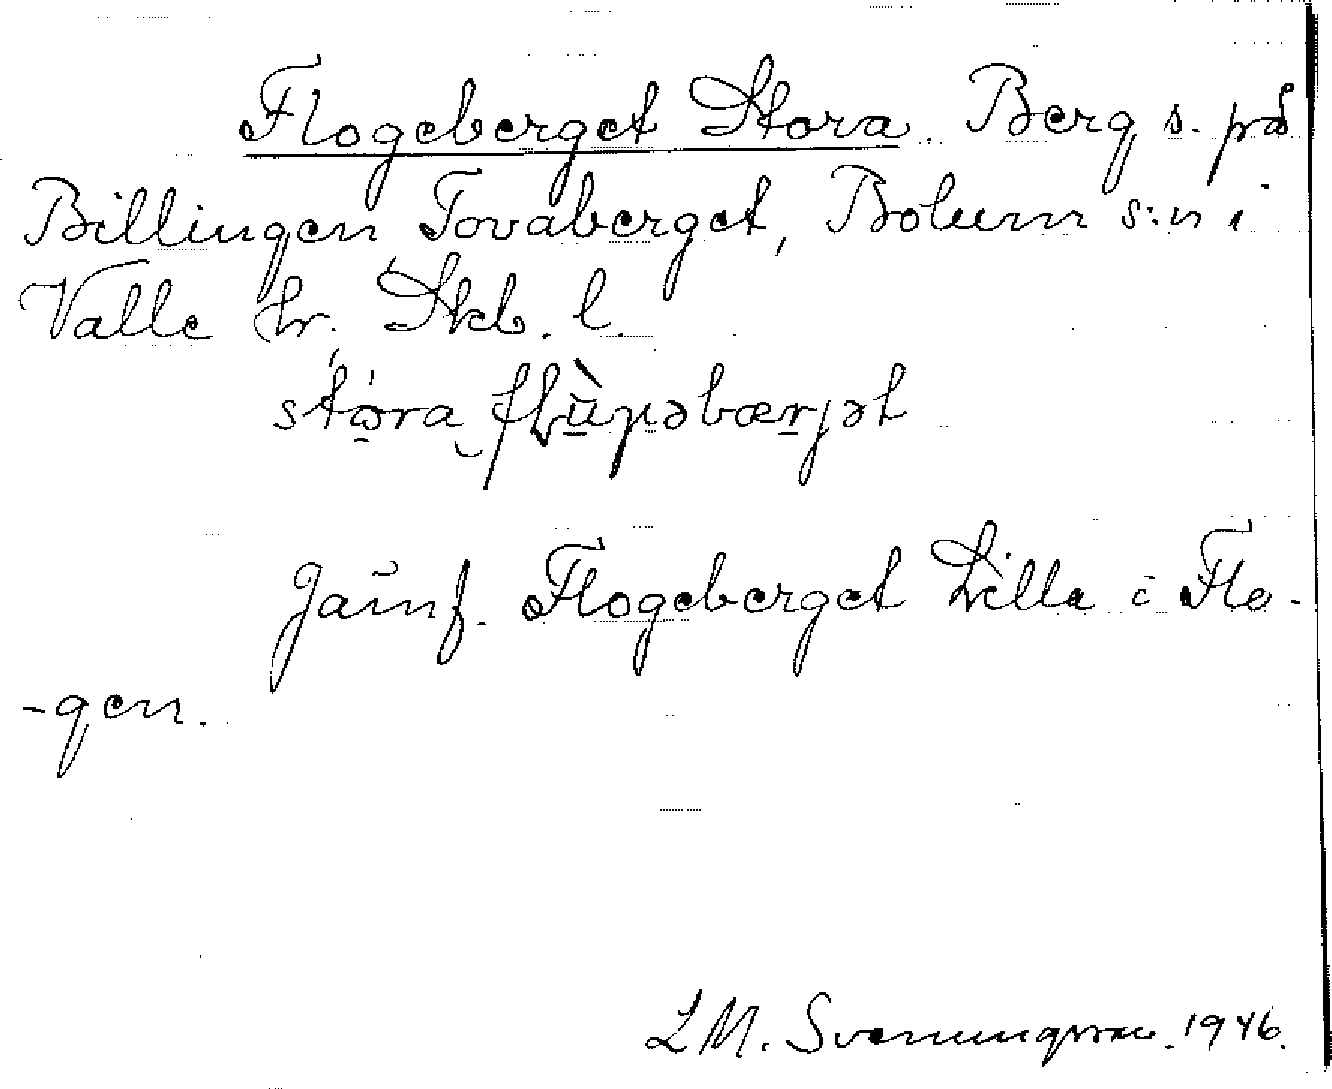 Flogeberget Stora. Berg s. på
Billingen Tovaberget, Bolum s:n i
Valle hr. Skb. l.
Jämf. Flogeberget Lilla i Flo-
-gen.
L M. Svenungsson. 1946.